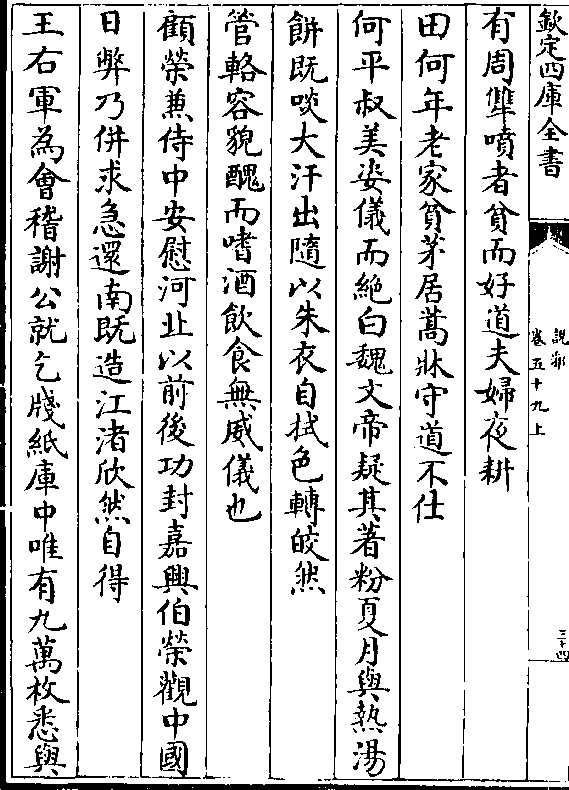 欽定四庫全書
說郛
卷五十九上
三十四
有周犨噴者貧而好道夫婦夜耕
田何年老家貧茅居蒿牀守道不仕
何平叔美姿儀而絶白魏文帝疑其著粉夏月與熱湯
餅既啖大汗出隨以朱衣自拭色轉皎然
管輅容貌醜而嗜酒飲食無威儀也
顧榮兼侍中安慰河北以前後功封嘉興伯榮觀中國
日弊乃併求急還南既造江渚欣然自得
王右軍為會稽謝公就乞牋紙庫中唯有九萬枚悉與